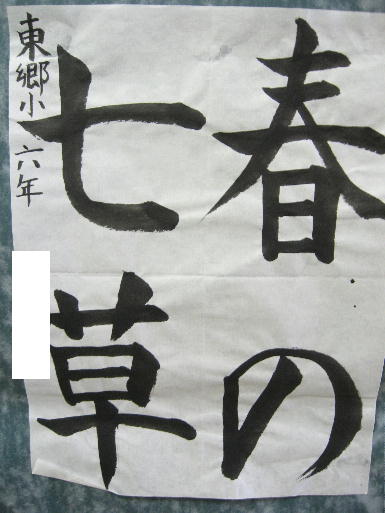 春の
七草
東郷小 六年